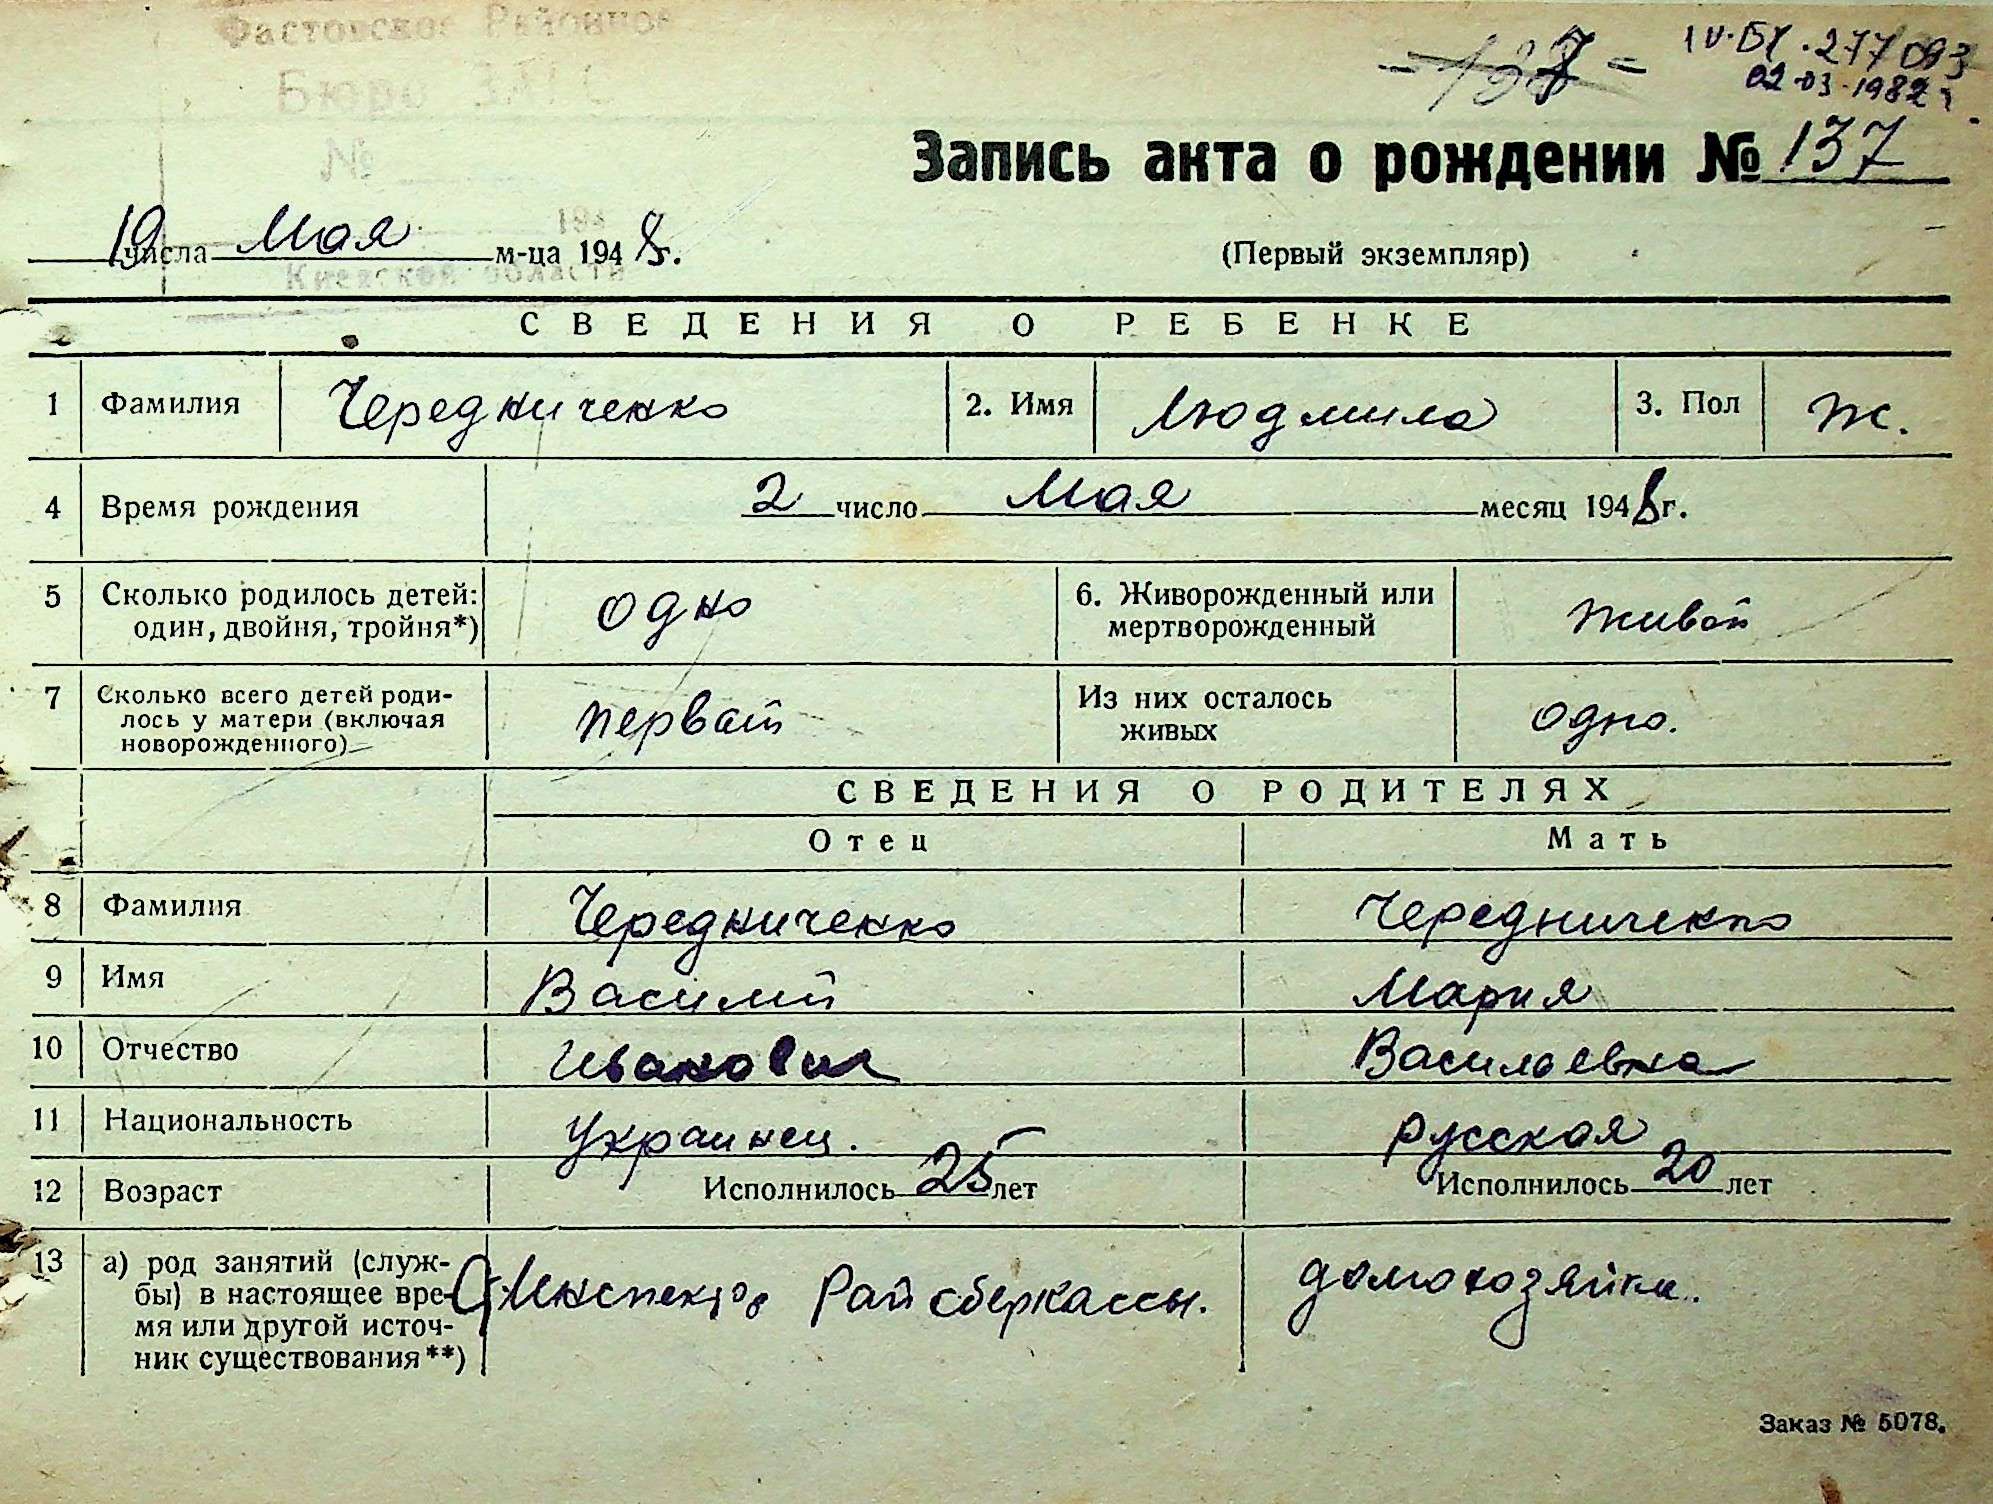 Фастовское Районное
Бюро ЗАГС
№
194
Киевской области
- 137 -
IV-БК . 277093
02-03-1982 г
Запись акта о рождении № 137
19 числа Мая м-ца 1948 г.
(Первый экземпляр)
СВЕДЕНИЯ О РЕБЕНКЕ
1 Фамилия Чередниченко 2. Имя Людмила 3. Пол ж.
4 Время рождения 2 число Мая месяц 1948 г.
5 Сколько родилось детей: один, двойня, тройня*) одно 6. Живорожденный или мертворожденный живой
7 Сколько всего детей роди-
лось у матери (включая
новорожденного) первый Из них осталось живых одно.
СВЕДЕНИЯ О РОДИТЕЛЯХ
Отец Мать
8 Фамилия Чередниченко Чередниченко
9 Имя Василий Мария
10 Отчество Иванович Васильевна
11 Национальность украинец. русская
12 Возраст Исполнилось 25 лет Исполнилось 20 лет
13 а) род занятий (служ-
бы) в настоящее вре-
мя или другой источ-
ник существования**) Инспектор Райсберкассы. домохозяйка.
Заказ № 5078.